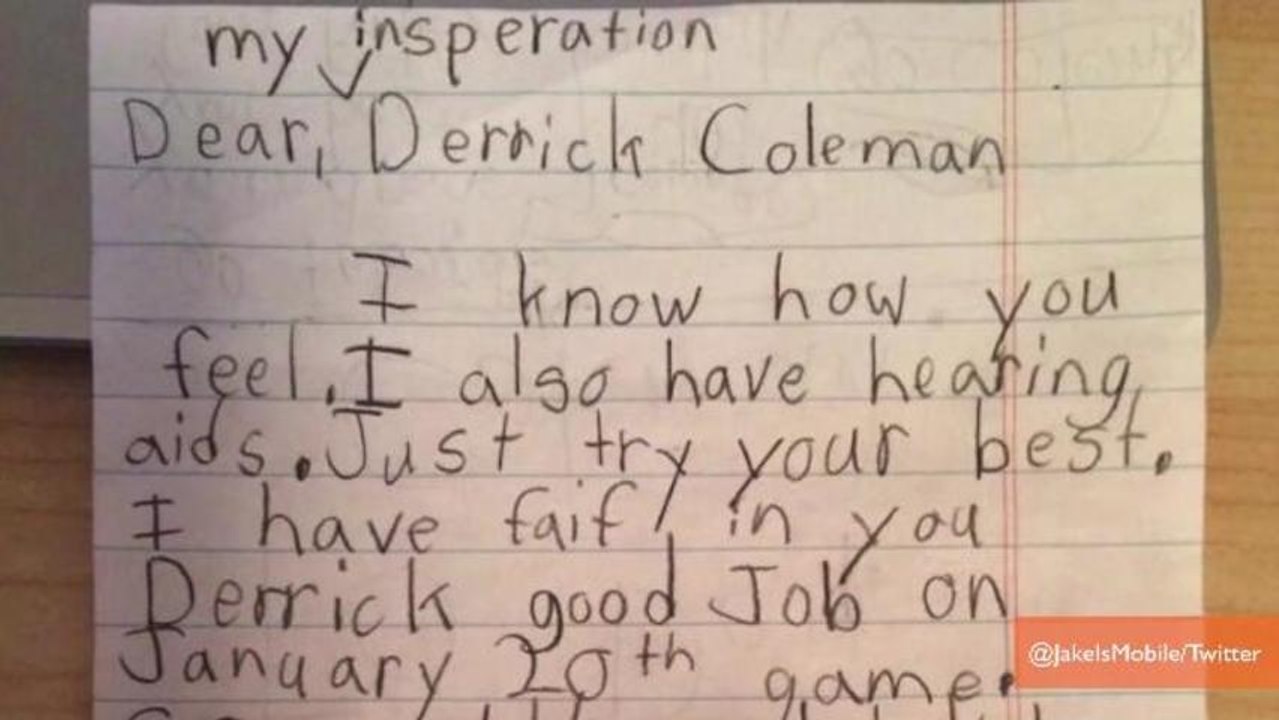 my insperation
Dear, Derrick Coleman
I know how you
feel. I also have hearing
aids. Just try your best.
I have faif in you
Derrick good Job on
January 20th game.
@JakeIsMobile/Twitter